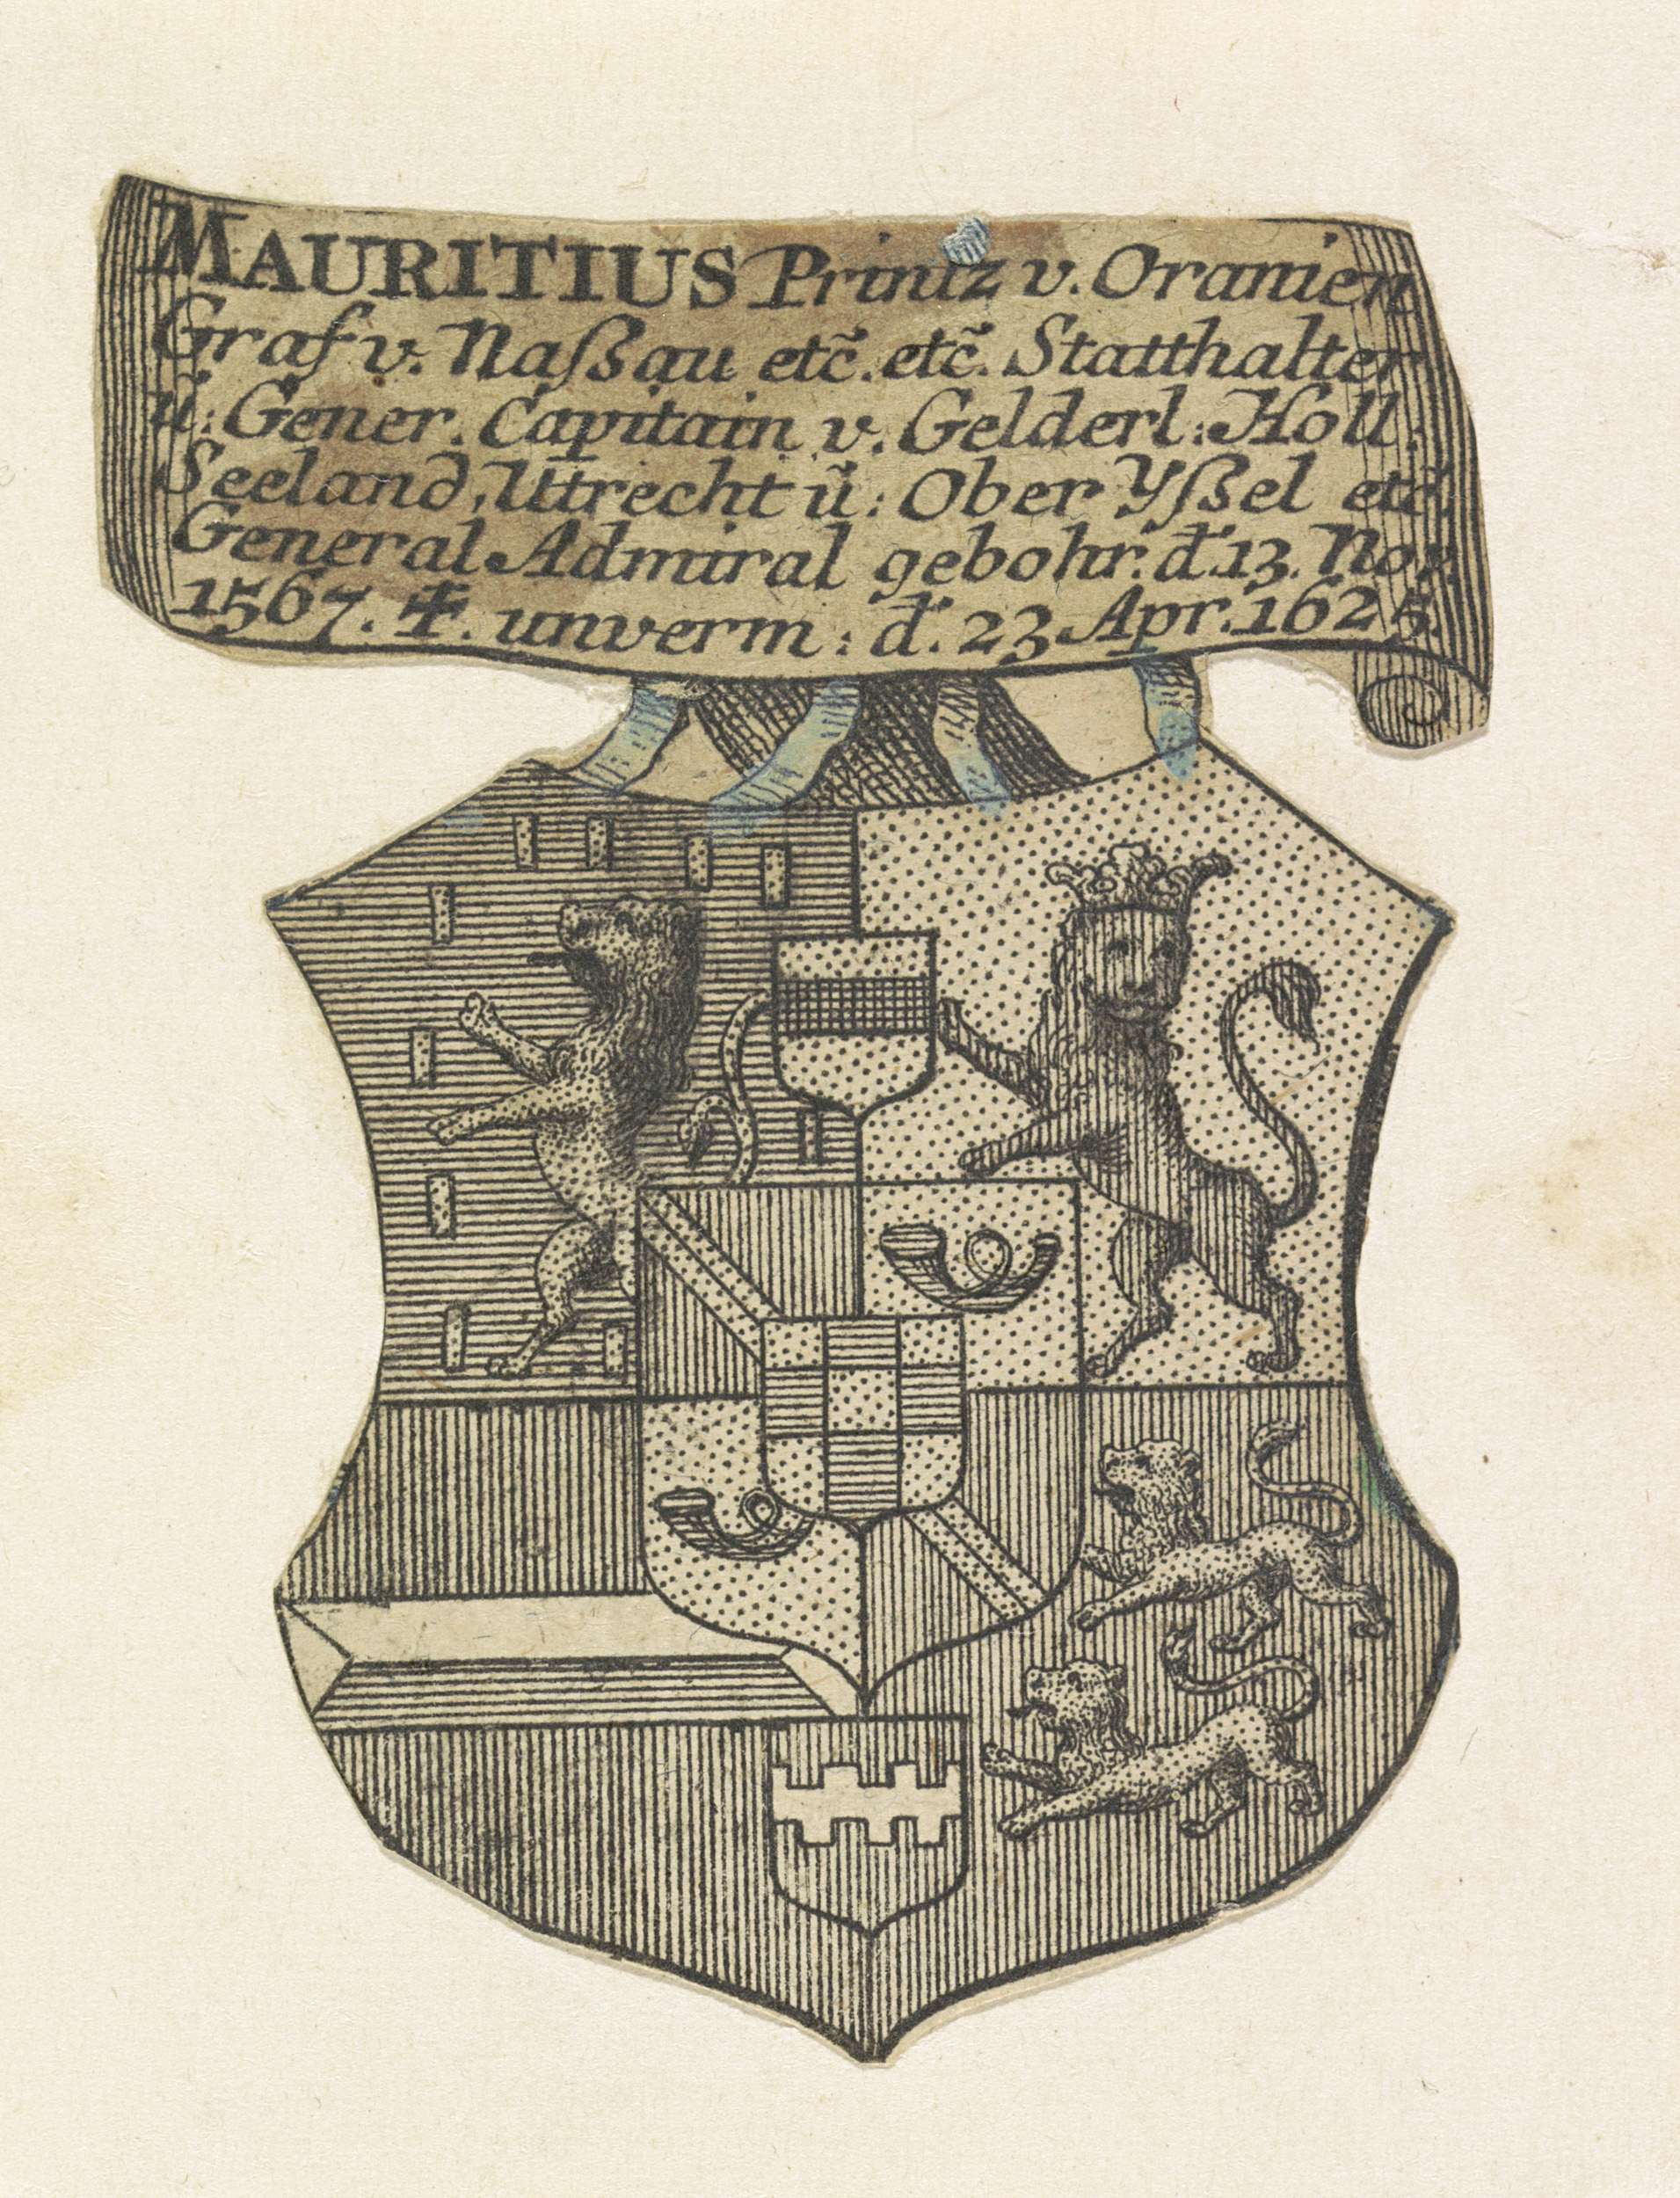 MAURITIUS Printz v. Oranien
Graf v. Naſßau etc̃. etc̃. Statthalter
ũ: Gener. Capitain v. Gelderl: Holl.
Seeland, Utrecht ũ: Ober Yſßel etc.
General Admiral gebohr. đ. 13. Nov.
1567. ☩. unverm: đ. 23 Apr. 1625.